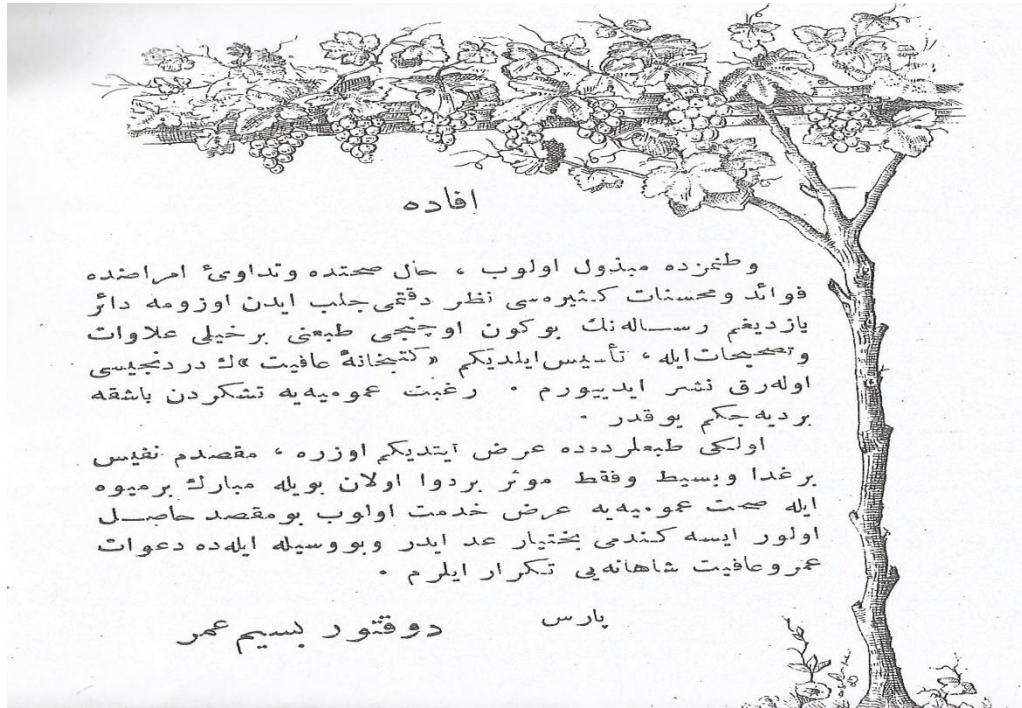 افاده
وطنمزده مبذول اولوب ، حال صحتده وتداوئ امراضنده
فوائد ومحسنات كثیره‌سی نظر دقتمی جلب ایدن اوزومه دائر
یازدیغم رســاله‌نك بوكون اوچنجی طبعنی برخیلی علاوات
وتصحیحات ایله ، تأسیس ایلدیكم «كتبخانهٔ عافیت »ك دردنجیسی
اوله‌رق نشر ایدییورم ۰ رغبت عمومیه‌یه تشكردن باشقه
بردیه‌جكم یوقدر ۰
اولكی طبعلرده‌ده عرض ایتدیكم اوزره ، مقصدم نفیس
برغدا وبسیط وفقط موثر بردوا اولان بویله مبارك برمیوه
ایله صحت عمومیه‌یه عرض خدمت اولوب بومقصد حاصــل
اولور ایسه كندمی بختیار عد ایدر وبووسیله ایله‌ده دعوات
عمر وعافیت شاهانه‌یی تكرار ایلرم ۰
پارس
دوقتور بسیم عمر